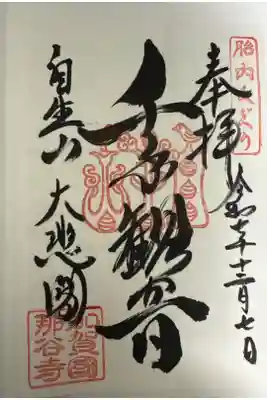 胎内くぐり
奉拝
令和七年十二月七日
千手観音
自生山 大悲閣
加賀國
那谷寺